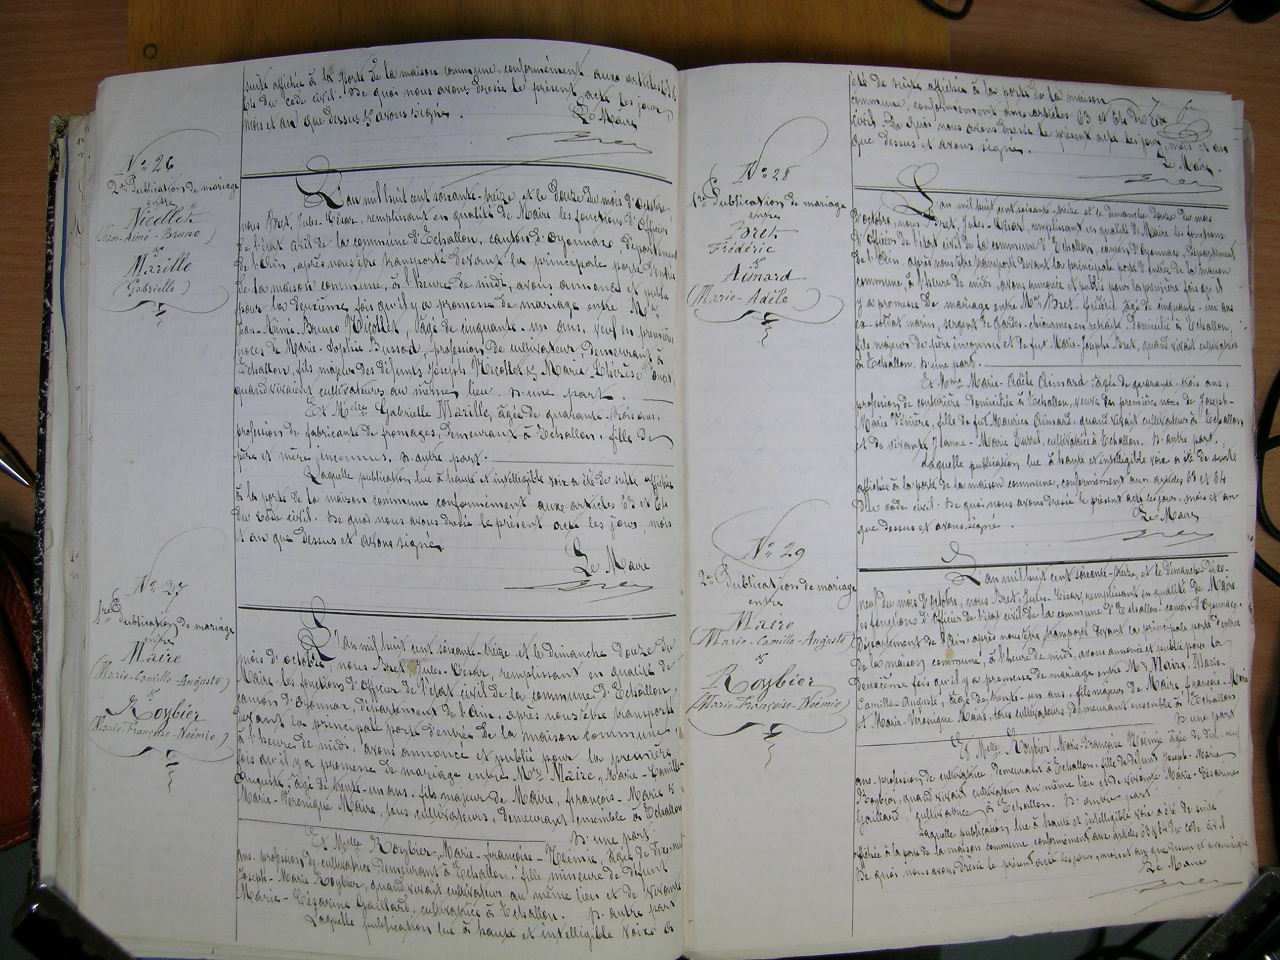 suite affichée à la porte de la maison commune, conformément aux articles 63
et 64 du code civil. De quoi nous avons dressé le présent acte les jour,
mois et an que dessus et avons signé.
Le Maire
Nº 26
2me Publication de mariage
entre
Nicollet
(Jean-Aimé-Bruno)
&
Marille
(Gabrielle)
L'an mil huit cent soixante-treize, et le douze du mois d'Octobre
nous Bret, Jules-César, remplissant en qualité de Maire les fonctions d'Officier
de l'état civil de la commune d'Echallon, canton d'Oyonnax, département
de l'Ain, après nous être transporté devant la principale porte d'entrée
de la maison commune, à l'heure de midi, avons annoncé et publié
pour la deuxième fois qu'il y a promesse de mariage entre Mr
Jean-Aimé-Bruno Nicollet, âgé de cinquante-un ans, veuf en premières
noces de Marie-Sophie Bussod, profession de cultivateur, demeurant à
Echallon, fils majeur des défunts Joseph Nicollet & Marie-Thérèse
quand vivaient cultivateurs au même lieu. D'une part.
Et Melle Gabrielle Marille, âgée de quarante-trois ans,
profession de fabricante de fromages, demeurant à Echallon, fille de
père et mère inconnus, d'autre part.
Laquelle publication lue à haute et intelligible voix a été de suite affichée
à la porte de la maison commune conformément aux articles 63 et 64
du code civil. De quoi nous avons dressé le présent acte les jour, mois
et an que dessus et avons signé.
Le Maire
Nº 27
1re Publication de mariage
entre
Maire
(Marie-Camille-Auguste)
&
Roybier
(Marie-Françoise-Noémie)
L'an mil huit cent soixante-treize et le dimanche douze du
mois d'octobre, nous Bret Jules-César, remplissant en qualité de
Maire les fonctions d'Officier de l'état civil de la commune d'Echallon,
canton d'Oyonnax, département de l'Ain, après nous être transporté
devant la principale porte d'entrée de la maison commune,
à l'heure de midi, avons annoncé et publié pour la première
fois qu'il y a promesse de mariage entre Mr Maire, Marie-Camille-
Auguste, âgé de trente-un ans, fils majeur de Maire, François-Marie &
Marie-Véronique Maire, tous cultivateurs, demeurant ensemble à Echallon
D'une part.
Et Melle Roybier, Marie-Françoise-Noémie, âgée de
ans, profession de cultivatrice demeurant à Echallon, fille mineure de défunt
Joseph-Marie Roybier, quand vivait cultivateur au même lieu et de vivante
Marie-Césarine Gaillard, cultivatrice à Echallon. D'autre part
Laquelle publication lue à haute et intelligible voix a
été de suite affichée à la porte de la maison
commune, conformément aux articles 63 et 64 du Code
civil. De quoi nous avons dressé le présent acte les jour, mois et an
que dessus et avons signé.
Le Maire.
Nº 28
1re Publication de mariage
entre
Bret
Frédéric
&
Aimard
(Marie-Adèle)
L'an mil huit cent soixante-treize et le dimanche douze du mois
d'octobre, nous Bret, Jules-César, remplissant en qualité de Maire les fonctions
d'Officier de l'état civil de la commune d'Echallon, canton d'Oyonnax, département
de l'Ain, après nous être transporté devant la principale porte d'entrée de la maison
commune, à l'heure de midi, avons annoncé et publié pour la première fois qu'il
y a promesse de mariage entre Mr Bret, Frédéric âgé de cinquante-six ans
ex-soldat marin, sergent de gardes-chiourmes en retraite domicilié à Echallon,
fils majeur de père inconnu et de feue Marie-Joseph Bret, quand vivait cultivatrice
à Echallon. D'une part.
Et Mme Marie-Adèle Aimard âgée de quarante-trois ans,
profession de couturière domiciliée à Echallon, veuve des premières noces de Joseph-
Marie, fille de feu Maurice Aimard, quand vivait cultivateur à Echallon
et de vivante Jeanne-Marie, cultivatrice à Echallon. D'autre part.
Laquelle publication lue à haute et intelligible voix a été de suite
affichée à la porte de la maison commune, conformément aux articles 63 et 64
du code civil. De quoi nous avons dressé le présent acte les jour, mois et an
que dessus et avons signé.
Le Maire
Nº 29
2me Publication de mariage
entre
Maire
(Marie-Camille-Auguste)
&
Roybier
(Marie-Françoise-Noémie)
L'an mil huit cent soixante-treize, et le dimanche dix-
neuf du mois d'octobre, nous Bret, Jules-César, remplissant en qualité de Maire
les fonctions d'Officier de l'état civil de la commune d'Echallon canton d'Oyonnax,
département de l'Ain, après nous être transporté devant la principale porte d'entrée
de la maison commune, à l'heure de midi, avons annoncé et publié pour la
deuxième fois qu'il y a promesse de mariage entre Mr Maire, Marie-
Camille-Auguste, âgé de trente-un ans, fils majeur de Maire François-Marie
et Marie-Véronique Maire, tous cultivateurs demeurant ensemble à Echallon
D'une part
Et Melle Roybier Marie-Françoise Noémie âgée de
ans, profession de cultivatrice demeurant à Echallon, fille de défunt Joseph-Marie
Roybier, quand vivait cultivateur au même lieu et de vivante Marie-Césarine
Gaillard, cultivatrice à Echallon. D'autre part
Laquelle publication lue à haute et intelligible voix a été de suite
affichée à la porte de la maison commune conformément aux articles 63 & 64 du code civil
De quoi nous avons dressé le présent acte les jour, mois et an que dessus et avons signé
Le Maire